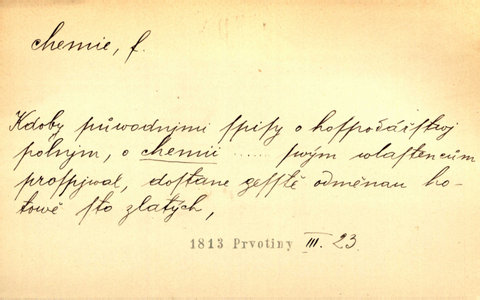 chemie, f.
Kdoby půwodnjmi spisy o hospodářstwj
polnjm, o chemii ...... swým wlastencům
prospjwal, dostane gesstě odměnau ho-
towě sto zlatých,
1813 Prvotiny III. 23.